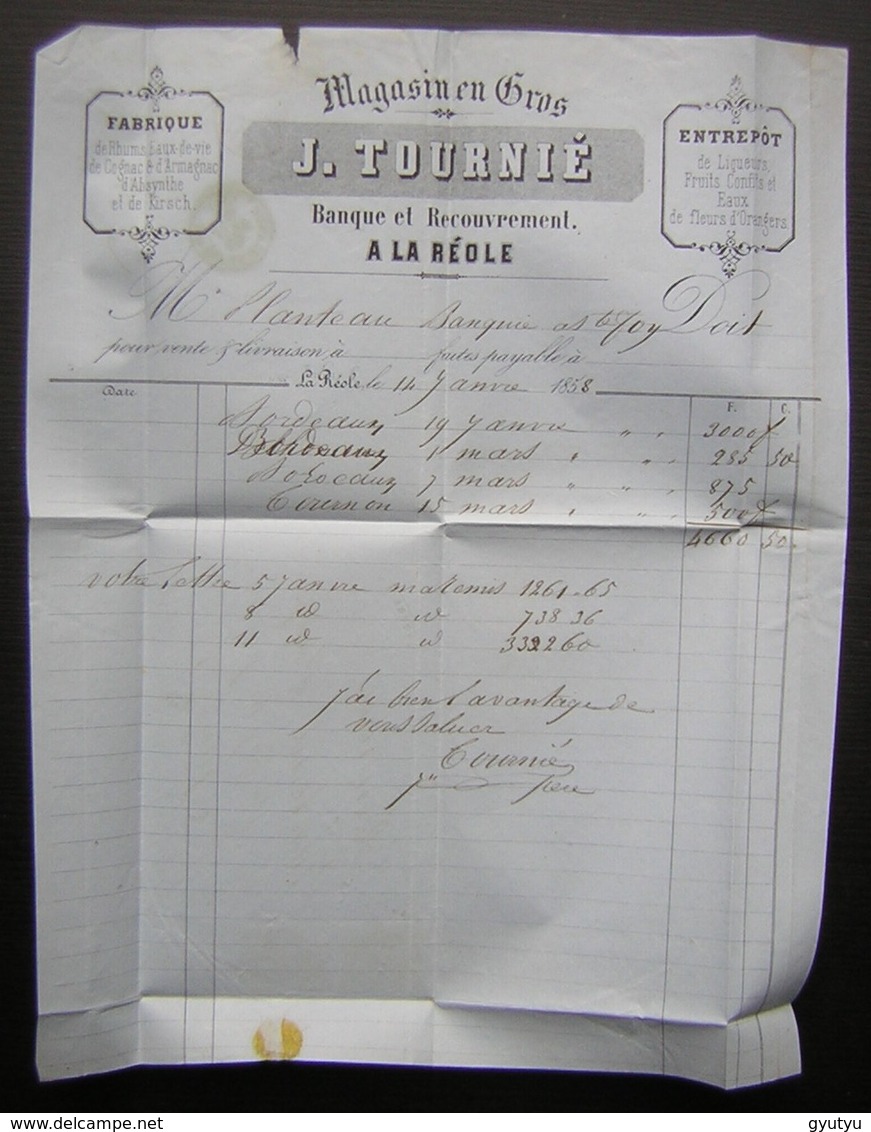 Magasin en Gros
J. TOURNIÉ
Banque et Recouvrement.
A LA RÉOLE
FABRIQUE
de Rhums Eaux-de-vie
de Cognac & d'Armagnac
d'Absynthe
et de Kirsch.
ENTREPÔT
de Liqueurs,
Fruits Confits et
Eaux
de fleurs d'Orangers.
Mr Planteau Banquie a Ste Foy Doit
pour vente & livraison à faites payable à
La Réole, le 14 Janvre 1858
Date F. C.
Bordeaux 19 Janvre " " 3000f
Bordeaux 1 mars " " 285 50
Bordeaux 7 mars " " 875
Tournon 15 mars " " 500f
4660 50
votre lettre 5 Janvre ma remis 1261.65
8 id id 738 36
11 id id 60
J'ai bien l'avantage de
vous saluer
Tournié
Jn
gyutyu